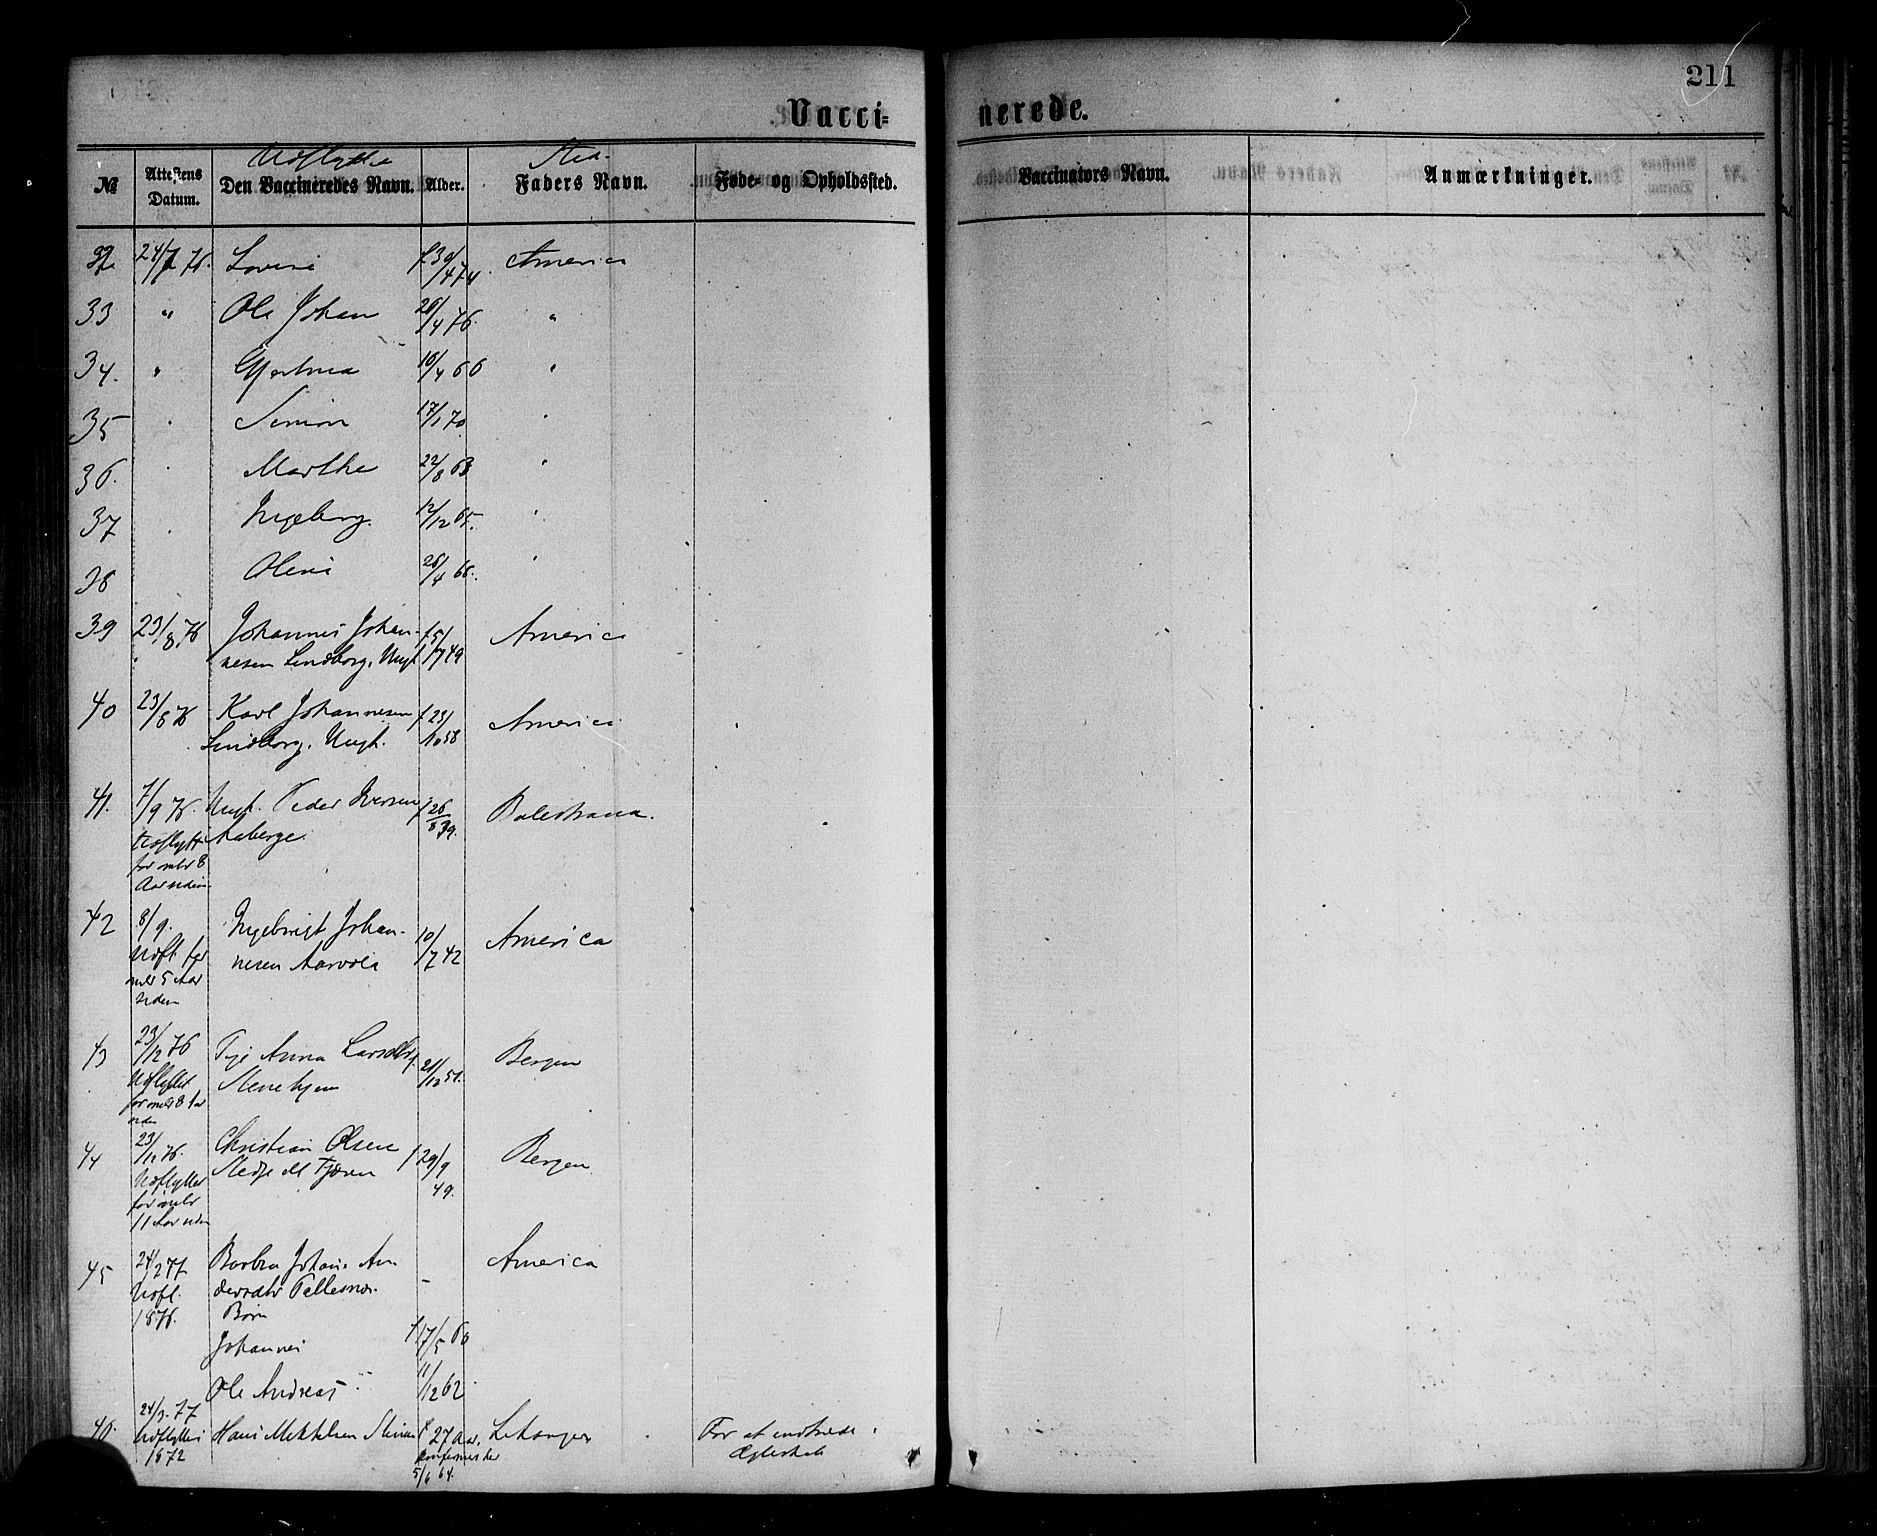 211
Vacci= nerede.
Udflyttede Sted.
№ Attestens Datum. Den Vaccineredes Navn. Alder. Faders Navn. Føde- og Opholdssted. Vaccinators Navn. Anmærkninger.
32 24/7 76. Lovise f. 30/4 74 America
33 " Ole Johan 26/4 76. "
34. " Gjertrud 10/4 66 "
35 " Simon 17/1 70 "
36. " Marthe 22/8 63 "
37 " Ingeborg. 12/12 65. "
38 Oline 26/4 68. "
39 23/8 76 Johannes Johan- f. 5/ America
nesen Lindborg, Ungk. 49
40 23/8 76 Karl Johannesen f. 23/ America
Lindborg, Ungk. 10 58
41. 7/9 76. Ungk. Peder Iversen f. 26/8 39. Balestrand.
Udflytt Aaberge.
for omtr 8
Aar siden
42 8/9. Ingebrigt Johan- 10/7 42 America
Udfl. for nesen Aarvoll
omtr 5 Aar
siden
43 23/12 76 Pige Anna Larsdtr f. 21/12 51. Bergen
Udflyttet Stenehjem
for omtr 8 Aar
siden
44 23/12 76. Christian Olsen f. 29/9 49. Bergen
Udflyttet Stedje Tjæren
for omtr
11 Aar siden
45 24/2 77 Barbra Johane An- - America
Udfl. dersdtr Tallesnæs.
1876. Børn
Johannes f. 17/5 60
Ole Andreas 11/12 62
46. 24/3 77 Hans Mikkelsen f. 27 Aar. Lekanger For at indtræde i
Udflyttet konfirmeret Ægteskab
1872 5/6 64.